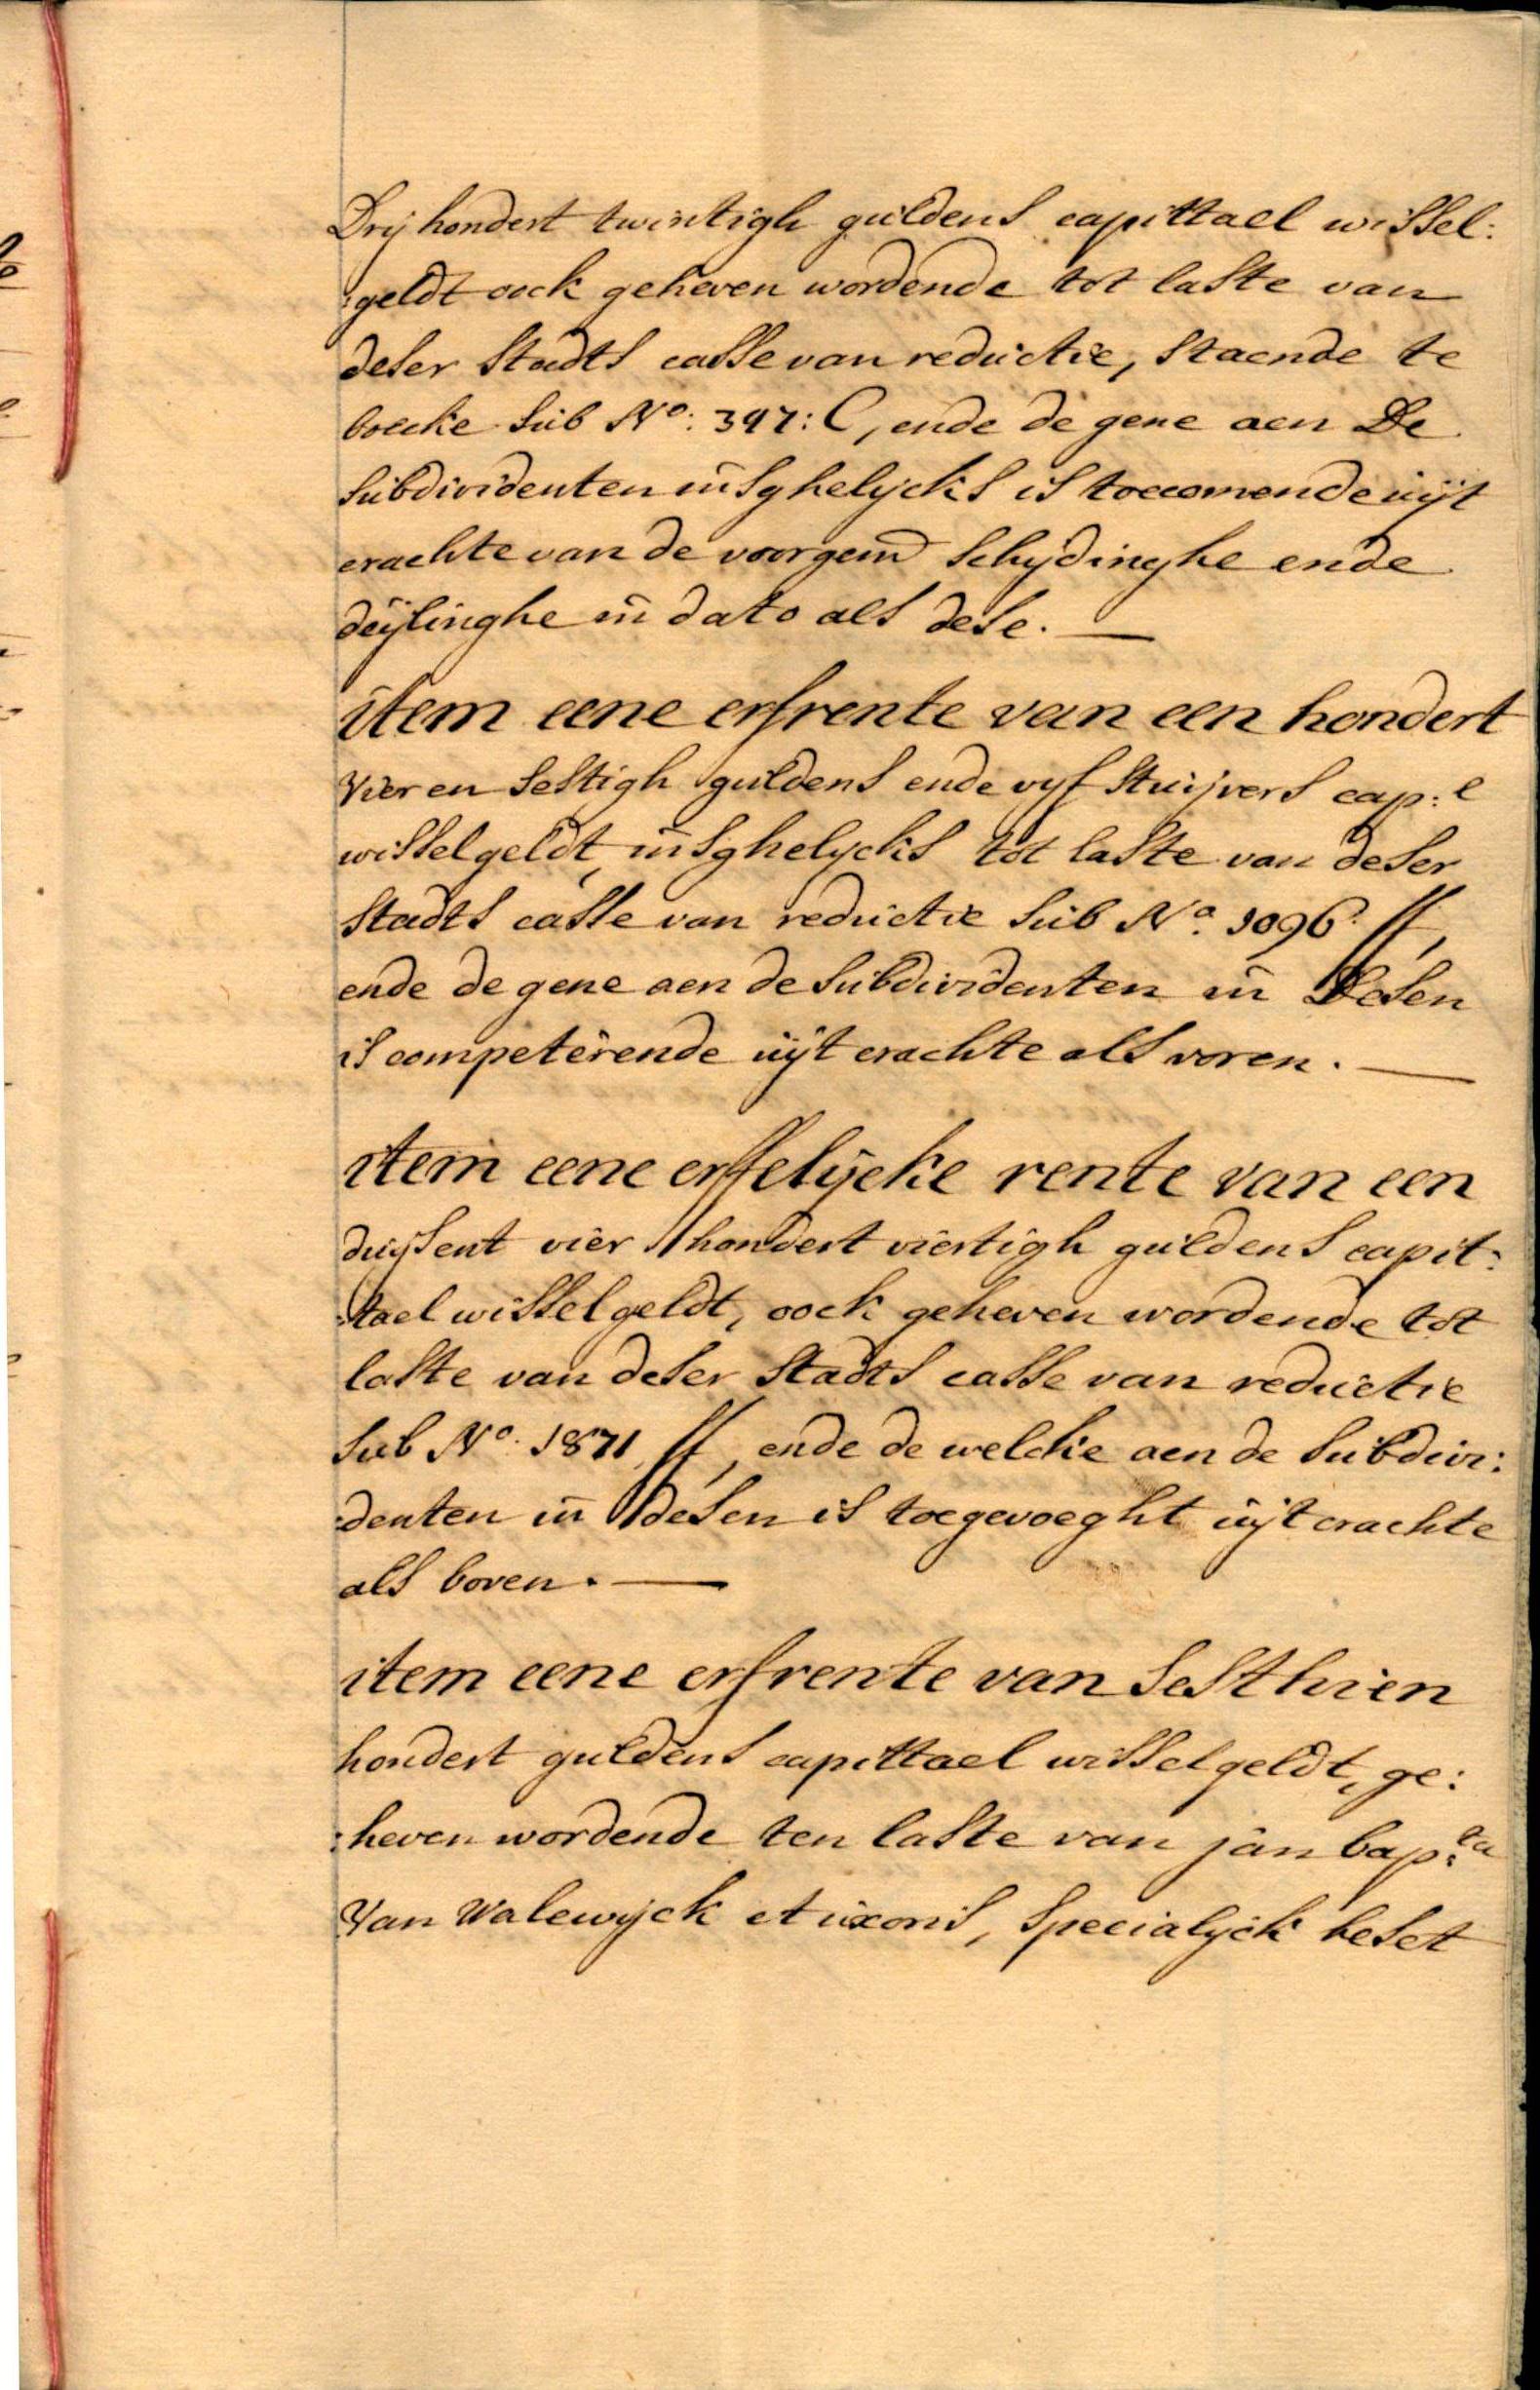 Drij hondert twintigh guldens capittael wissel:
:geldt oock geheven wordende tot laste van
deser stadts casse van reductie, staende te
boecke sub N.º: 397: C, ende de gene aen De
subdividenten insghelijckx is toecomende uijt
crachte van de voorgem. schijdinghe ende
deijlinghe in dato als dese. —
item eene erfrente van een hondert
Vier en sestigh guldens ende vijf stuijvers cap:l
wisselgeldt, insghelijckx tot laste van deser
stadts casse van reductie sub N.º 1096. ff,
ende de gene aen de subdividenten in Desen
is competerende uijt crachte als voren. —
item eene erffelijcke rente van een
duijsent vier hondert viertigh guldens capit:
:tael wisselgeldt, oock geheven wordende tot
laste van deser stadts casse van reductie
sub N.º 1871 ff, ende de welcke aen de subdivi:
:denten in desen is toegevoeght uijt crachte
als boven. —
item eene erfrente van sesthien
hondert guldens capittael wisselgeldt, ge:
:heven wordende ten laste van jan bap:ta
Van Walewijck et uxoris, specialijck beset